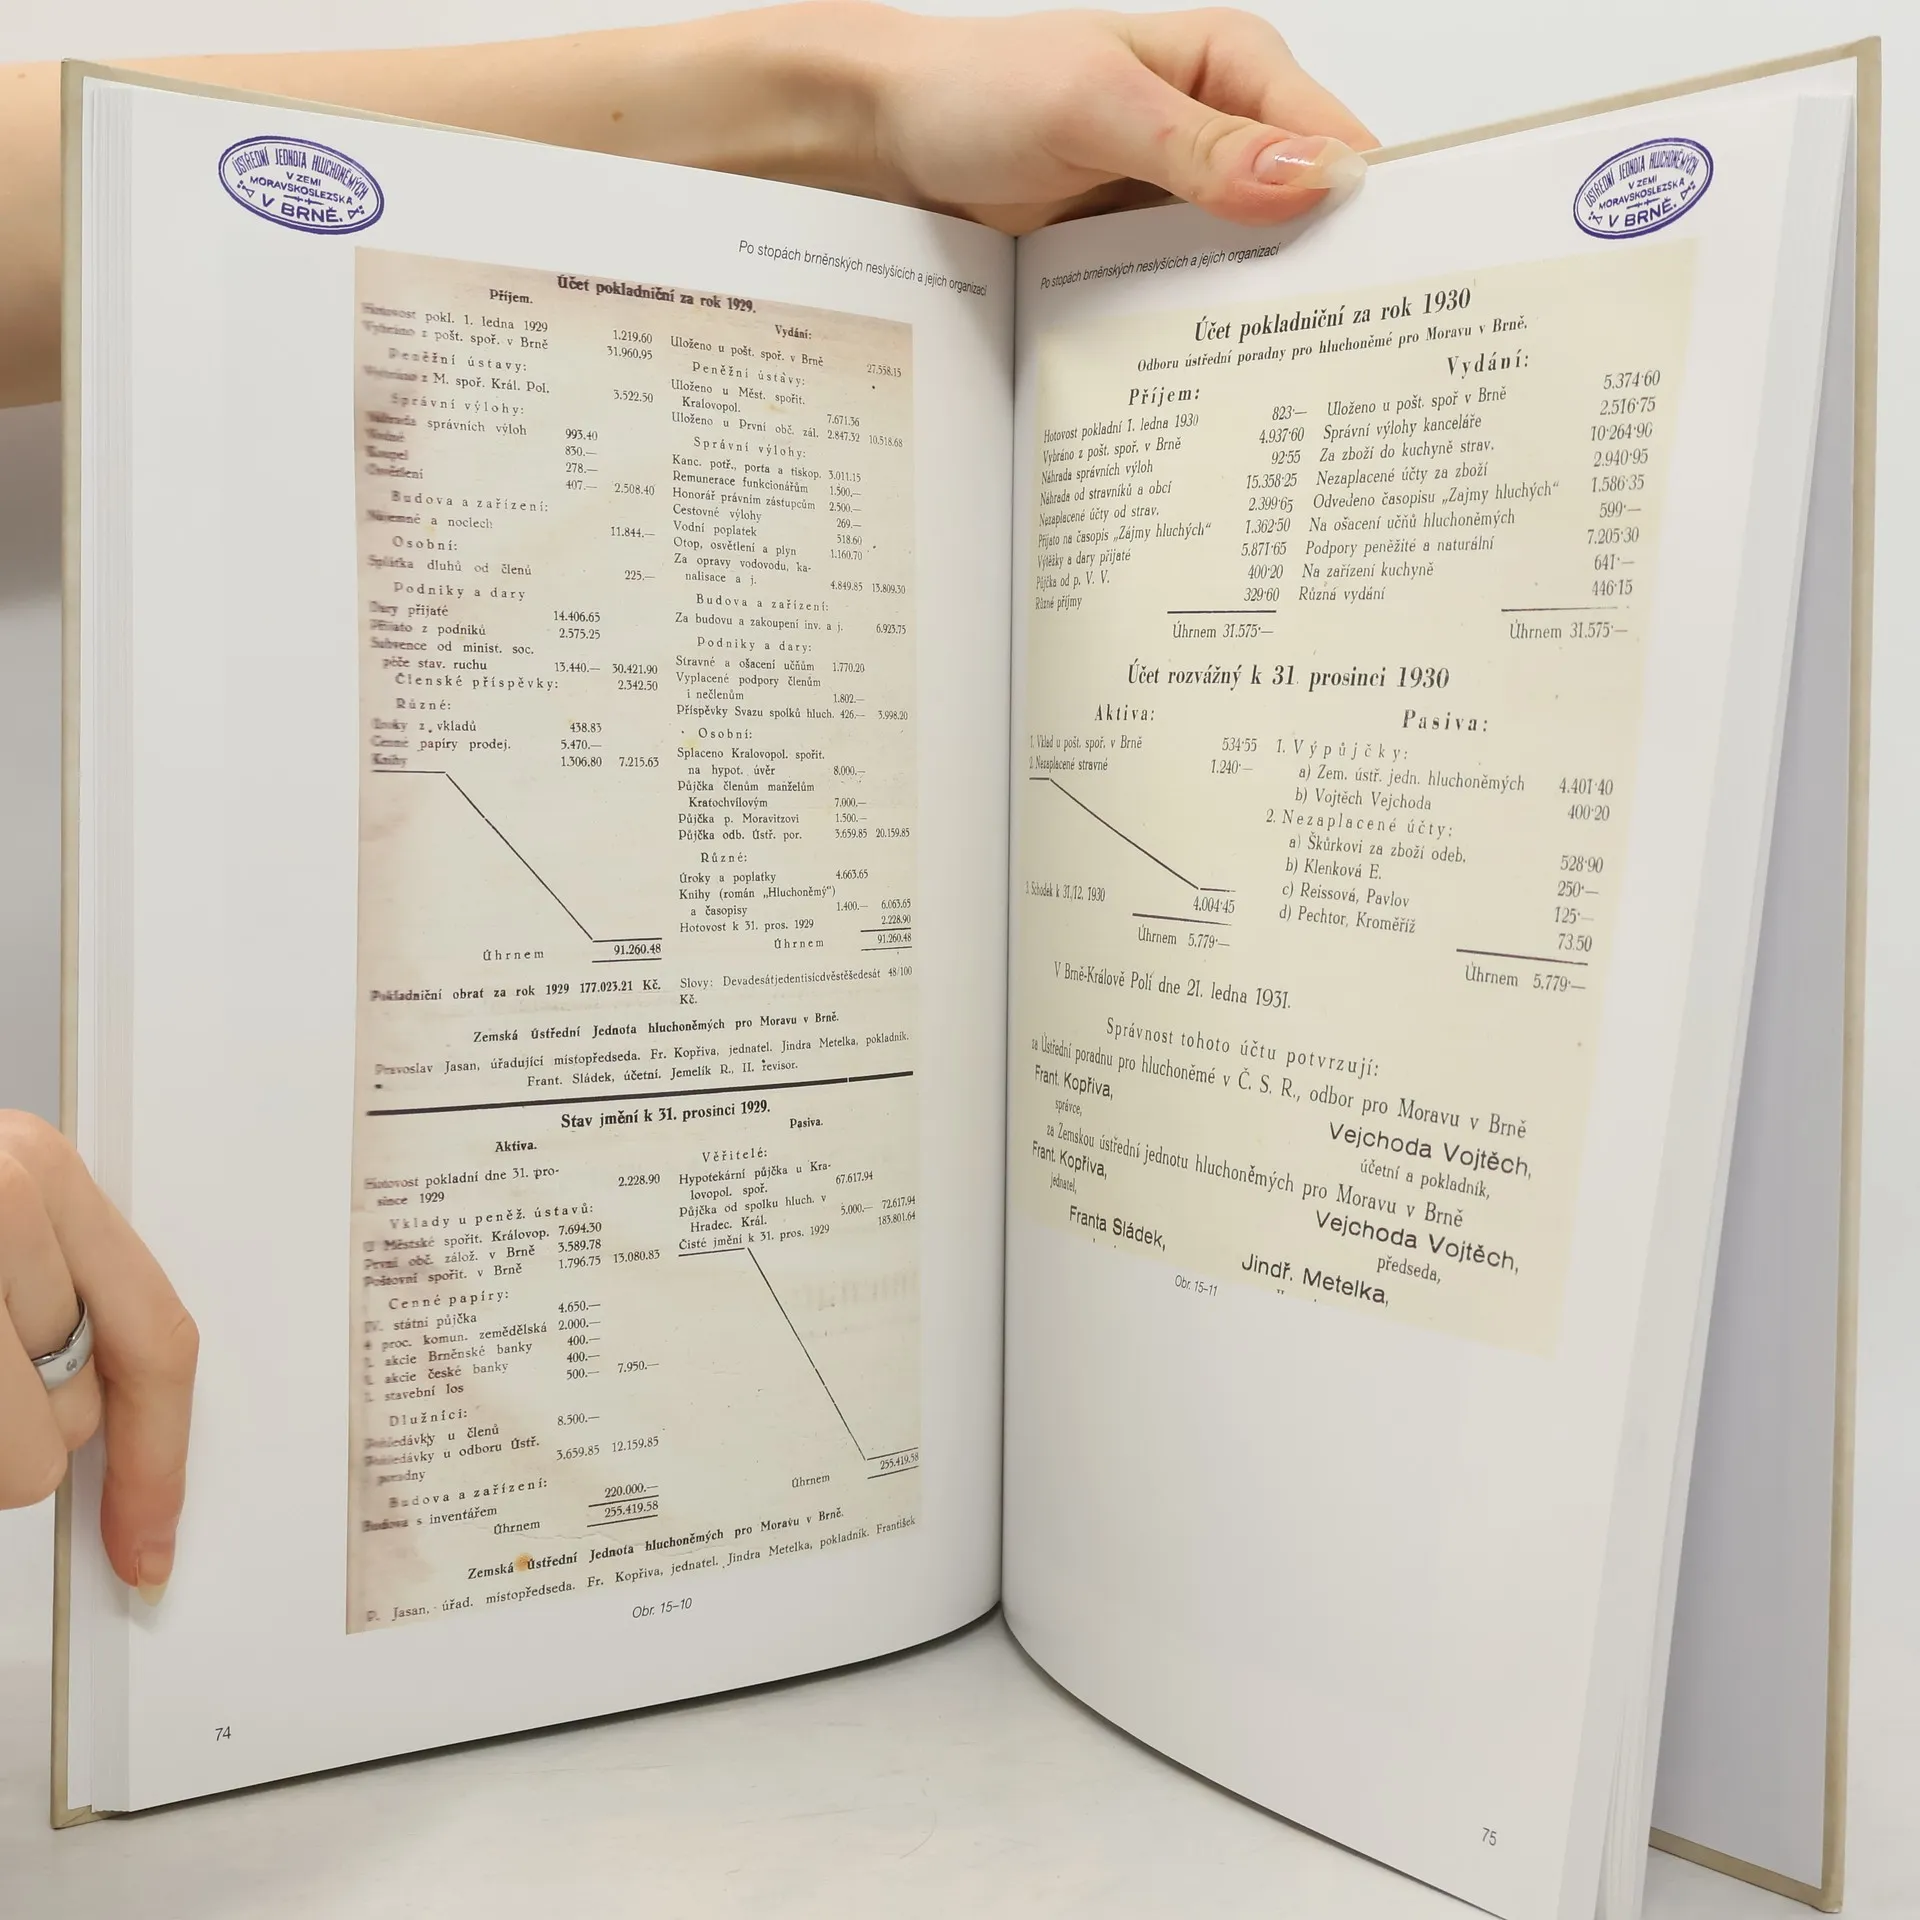 ÚSTŘEDNÍ JEDNOTA HLUCHONĚMÝCH
V ZEMI
MORAVSKOSLEZSKÁ
V BRNĚ.
Po stopách brněnských neslyšících a jejich organizací
Účet pokladniční za rok 1929.
Příjem.
Hotovost pokl. 1. ledna 1929 1.219.60
Vybráno z pošt. spoř. v Brně 31.960.95
Peněžní ústavy:
Vybráno z M. spoř. Král. Pol. 3.522.50
Správní výlohy:
Náhrada správních výloh 993.40
Vodné 830.—
Koupel 278.—
Osvětlení 407.— 2.508.40
Budova a zařízení:
Nájemné a nocleh 11.844.—
Osobní:
Splátka dluhů od členů 225.—
Podniky a dary
Dary přijaté 14.406.65
Přijato z podniků 2.575.25
Subvence od minist. soc.
péče stav. ruchu 13.440.— 30.421.90
Členské příspěvky: 2.342.50
Různé:
Úroky z vkladů 438.83
Cenné papíry prodej. 5.470.—
Knihy 1.306.80 7.215.63
Úhrnem 91.260.48
Vydání:
Uloženo u pošt. spoř. v Brně 27.558.15
Peněžní ústavy:
Uloženo u Měst. spořit.
Kralovopol. 7.671.36
Uloženo u První obč. zál. 2.847.32 10.518.68
Správní výlohy:
Kanc. potř., porta a tiskop. 3.011.15
Remunerace funkcionářům 1.500.—
Honorář právním zástupcům 2.500.—
Cestovné výlohy 269.—
Vodní poplatek 518.60
Otop, osvětlení a plyn 1.160.70
Za opravy vodovodu, ka-
nalisace a j. 4.849.85 13.809.30
Budova a zařízení:
Za budovu a zakoupení inv. a j. 6.923.75
Podniky a dary:
Stravné a ošacení učňům 1.770.20
Vyplacené podpory členům
i nečlenům 1.802.—
Příspěvky Svazu spolků hluch. 426.— 3.998.20
Osobní:
Splaceno Kralovopol. spořit.
na hypot. úvěr 8.000.—
Půjčka členům manželům
Kratochvílovým 7.000.—
Půjčka p. Moravitzovi 1.500.—
Půjčka odb. Ústř. por. 3.659.85 20.159.85
Různé:
Úroky a poplatky 4.663.65
Knihy (román „Hluchoněmý")
a časopisy 1.400.— 6.063.65
Hotovost k 31. pros. 1929 2.228.90
Úhrnem 91.260.48
Pokladniční obrat za rok 1929 177.023.21 Kč.
Slovy: Devadesátjedentisícdvěstěšedesát 48/100
Kč.
Zemská Ústřední Jednota hluchoněmých pro Moravu v Brně.
Pravoslav Jasan, úřadující místopředseda. Fr. Kopřiva, jednatel. Jindra Metelka, pokladník.
Frant. Sládek, účetní. Jemelík R., II. revisor.
Stav jmění k 31. prosinci 1929.
Aktiva.
Hotovost pokladní dne 31. pro-
since 1929 2.228.90
Vklady u peněž. ústavů:
U Městské spořit. Královop. 7.694.30
První obč. zálož. v Brně 3.589.78
Poštovní spořit. v Brně 1.796.75 13.080.83
Cenné papíry:
IV. státní půjčka 4.650.—
4 proc. komun. zemědělská 2.000.—
akcie Brněnské banky 400.—
akcie české banky 400.—
stavební los 500.— 7.950.—
Dlužníci:
Pohledávky u členů 8.500.—
Pohledávky u odboru Ústř.
poradny 3.659.85 12.159.85
Budova a zařízení:
Budova s inventářem 220.000.—
Úhrnem 255.419.58
Pasiva.
Věřitelé:
Hypotekární půjčka u Kra-
lovopol. spoř. 67.617.94
Půjčka od spolku hluch. v
Hradec. Král. 5.000.— 72.617.94
Čisté jmění k 31. pros. 1929 183.801.64
Úhrnem 255.419.58
Zemská Ústřední Jednota hluchoněmých pro Moravu v Brně.
P. Jasan, úřad. místopředseda. Fr. Kopřiva, jednatel. Jindra Metelka, pokladník. František
Obr. 15–10
74
ÚSTŘEDNÍ JEDNOTA HLUCHONĚMÝCH
V ZEMI
MORAVSKOSLEZSKÁ
V BRNĚ.
Po stopách brněnských neslyšících a jejich organizací
Účet pokladniční za rok 1930
Odboru ústřední poradny pro hluchoněmé pro Moravu v Brně.
Příjem:
Hotovost pokladní 1. ledna 1930 823·—
Vybráno z pošt. spoř. v Brně 4.937·60
Náhrada správních výloh 92·55
Náhrada od stravníků a obcí 15.358·25
Nezaplacené účty od strav. 2.399·65
Přijato na časopis „Zájmy hluchých" 1.362·50
Výtěžky a dary přijaté 5.871·65
Půjčka od p. V. V. 400·20
Různé příjmy 329·60
Úhrnem 31.575·—
Vydání:
Uloženo u pošt. spoř v Brně 5.374·60
Správní výlohy kanceláře 2.516·75
Za zboží do kuchyně strav. 10·264·90
Nezaplacené účty za zboží 2.940·95
Odvedeno časopisu „Zajmy hluchých" 1.586·35
Na ošacení učňů hluchoněmých 599·—
Podpory peněžité a naturální 7.205·30
Na zařízení kuchyně 641·—
Různá vydání 446·15
Úhrnem 31.575·—
Účet rozvážný k 31. prosinci 1930
Aktiva:
1. Vklad u pošt. spoř. v Brně 534·55
2. Nezaplacené stravné 1.240·—
3. Schodek k 31./12. 1930 4.004·45
Úhrnem 5.779·—
Pasiva:
1. Výpůjčky:
a) Zem. ústř. jedn. hluchoněmých 4.401·40
b) Vojtěch Vejchoda 400·20
2. Nezaplacené účty:
a) Škůrkovi za zboží odeb. 528·90
b) Klenková E. 250·—
c) Reissová, Pavlov 125·—
d) Pechtor, Kroměříž 73.50
Úhrnem 5.779·—
V Brně-Králově Poli dne 21. ledna 1931.
Správnost tohoto účtu potvrzují:
za Ústřední poradnu pro hluchoněmé v Č. S. R., odbor pro Moravu v Brně
Frant. Kopřiva,
správce,
Vejchoda Vojtěch,
účetní a pokladník,
za Zemskou ústřední jednotu hluchoněmých pro Moravu v Brně
Frant. Kopřiva,
jednatel,
Vejchoda Vojtěch,
předseda,
Franta Sládek,
Jindř. Metelka,
Obr. 15–11
75